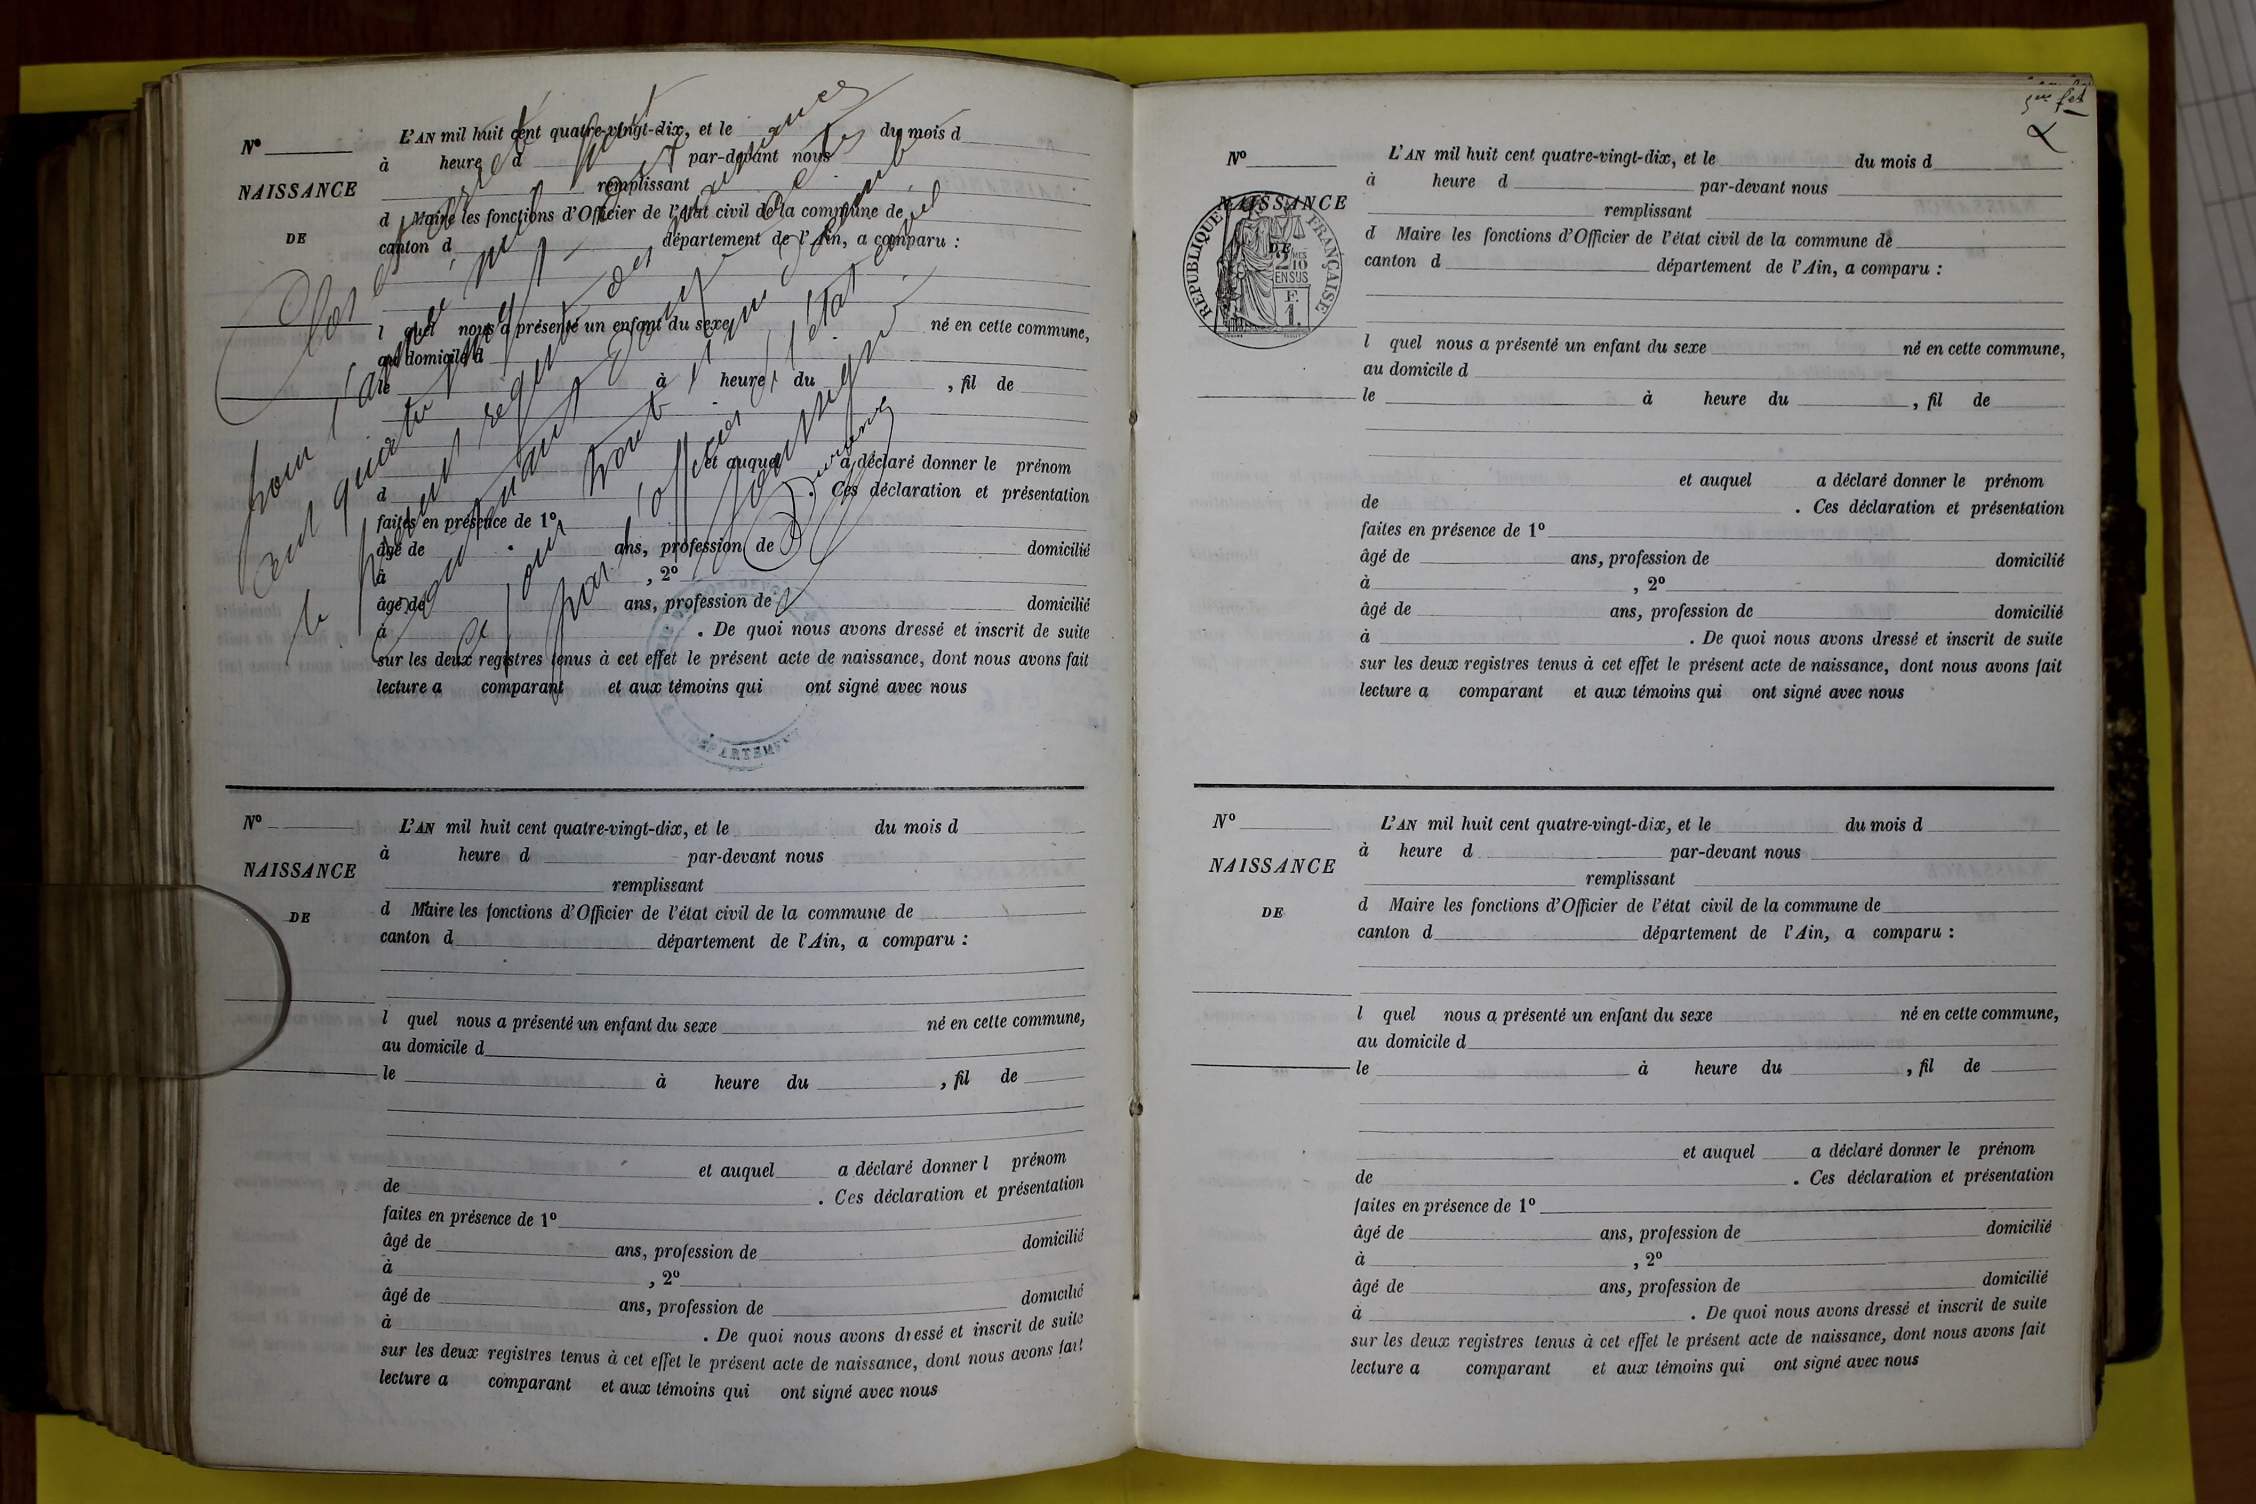 N°
NAISSANCE
DE
L'AN mil huit cent quatre-vingt-dix, et le du mois d
à heure d par-devant nous
remplissant
d Maire les fonctions d'Officier de l'état civil de la commune de
canton d département de l'Ain, a comparu :
l quel nous a présenté un enfant du sexe né en cette commune,
au domicile d
le à heure du , fil de
et auquel a déclaré donner le prénom
d . Ces déclaration et présentation
faites en présence de 1°
âgé de ans, profession de domicilié
à , 2°
âgé de ans, profession de domicilié
à . De quoi nous avons dressé et inscrit de suite
sur les deux registres tenus à cet effet le présent acte de naissance, dont nous avons fait
lecture a comparant et aux témoins qui ont signé avec nous
Clos et arrêté
pour l'année mil huit
cent quatre-vingt-dix
le présent registre des naissances
contenant
ce jour trente et un décembre
par l'officier de l'état civil
soussigné
DÉPARTEMENT
N°
NAISSANCE
DE
L'AN mil huit cent quatre-vingt-dix, et le du mois d
à heure d par-devant nous
remplissant
d Maire les fonctions d'Officier de l'état civil de la commune de
canton d département de l'Ain, a comparu :
l quel nous a présenté un enfant du sexe né en cette commune,
au domicile d
le à heure du , fil de
et auquel a déclaré donner l prénom
de . Ces déclaration et présentation
faites en présence de 1°
âgé de ans, profession de domicilié
à , 2°
âgé de ans, profession de domicilié
à . De quoi nous avons dressé et inscrit de suite
sur les deux registres tenus à cet effet le présent acte de naissance, dont nous avons fait
lecture a comparant et aux témoins qui ont signé avec nous
N°
NAISSANCE
DE
RÉPUBLIQUE FRANÇAISE
2 MES
10
EN SUS
F.
1.
L'AN mil huit cent quatre-vingt-dix, et le du mois d
à heure d par-devant nous
remplissant
d Maire les fonctions d'Officier de l'état civil de la commune de
canton d département de l'Ain, a comparu :
l quel nous a présenté un enfant du sexe né en cette commune,
au domicile d
le à heure du , fil de
et auquel a déclaré donner le prénom
de . Ces déclaration et présentation
faites en présence de 1°
âgé de ans, profession de domicilié
à , 2°
âgé de ans, profession de domicilié
à . De quoi nous avons dressé et inscrit de suite
sur les deux registres tenus à cet effet le présent acte de naissance, dont nous avons fait
lecture a comparant et aux témoins qui ont signé avec nous
N°
NAISSANCE
DE
L'AN mil huit cent quatre-vingt-dix, et le du mois d
à heure d par-devant nous
remplissant
d Maire les fonctions d'Officier de l'état civil de la commune de
canton d département de l'Ain, a comparu :
l quel nous a présenté un enfant du sexe né en cette commune,
au domicile d
le à heure du , fil de
et auquel a déclaré donner le prénom
de . Ces déclaration et présentation
faites en présence de 1°
âgé de ans, profession de domicilié
à , 2°
âgé de ans, profession de domicilié
à . De quoi nous avons dressé et inscrit de suite
sur les deux registres tenus à cet effet le présent acte de naissance, dont nous avons fait
lecture a comparant et aux témoins qui ont signé avec nous